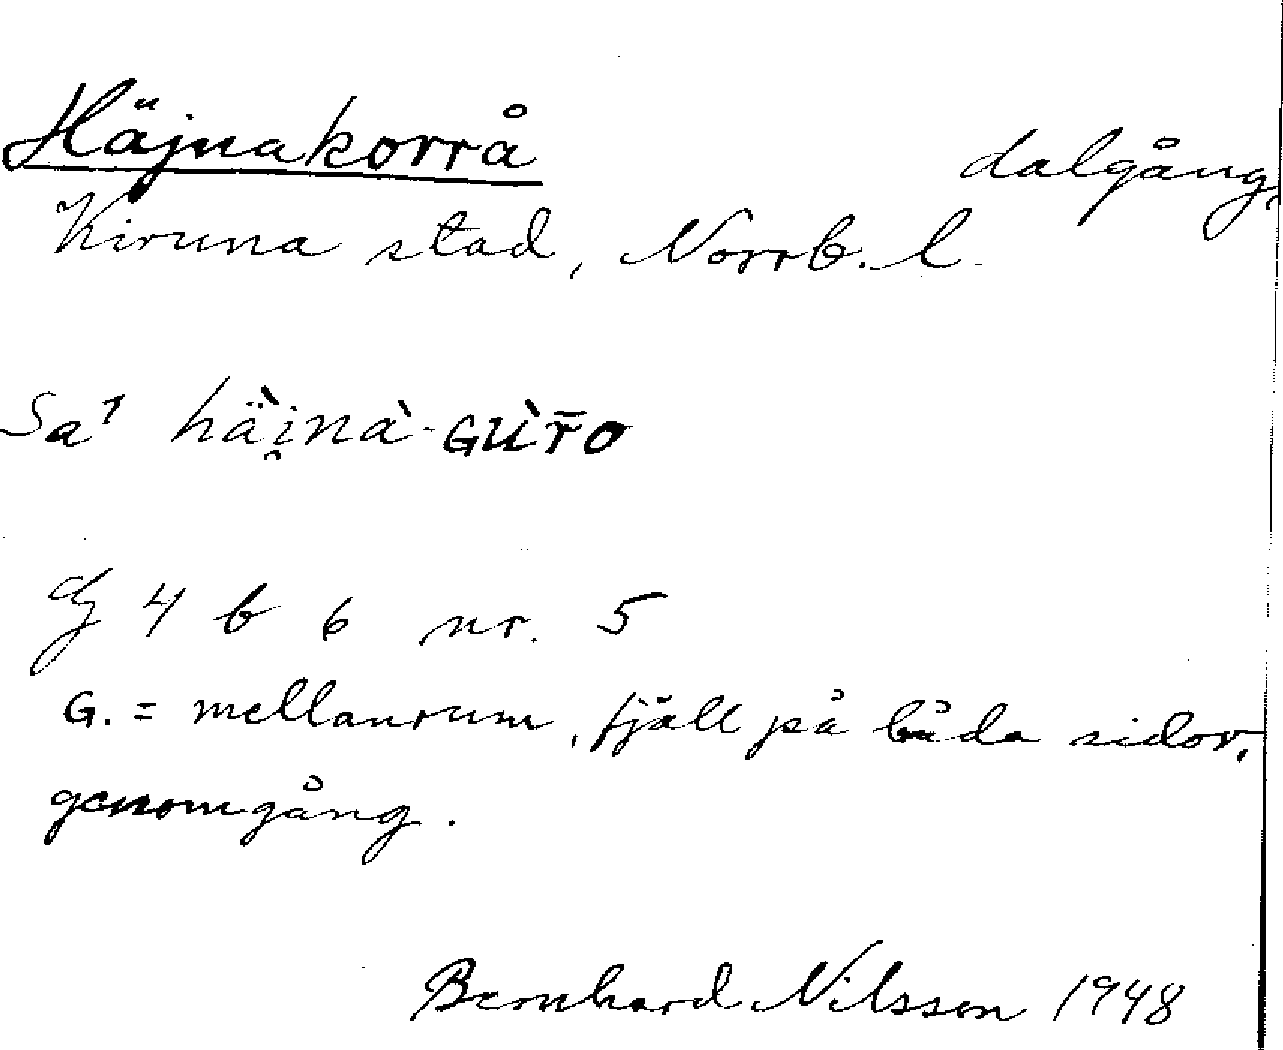 Häjnakorrå dalgång,
Kiruna stad, Norrb. l.
Sa¹ hä̀i̯nà-Gùr̄o
dj 4 b 6 nr. 5
G. = mellanrum, fjäll på båda sidor,
genomgång.
Bernhard Nilsson 1948